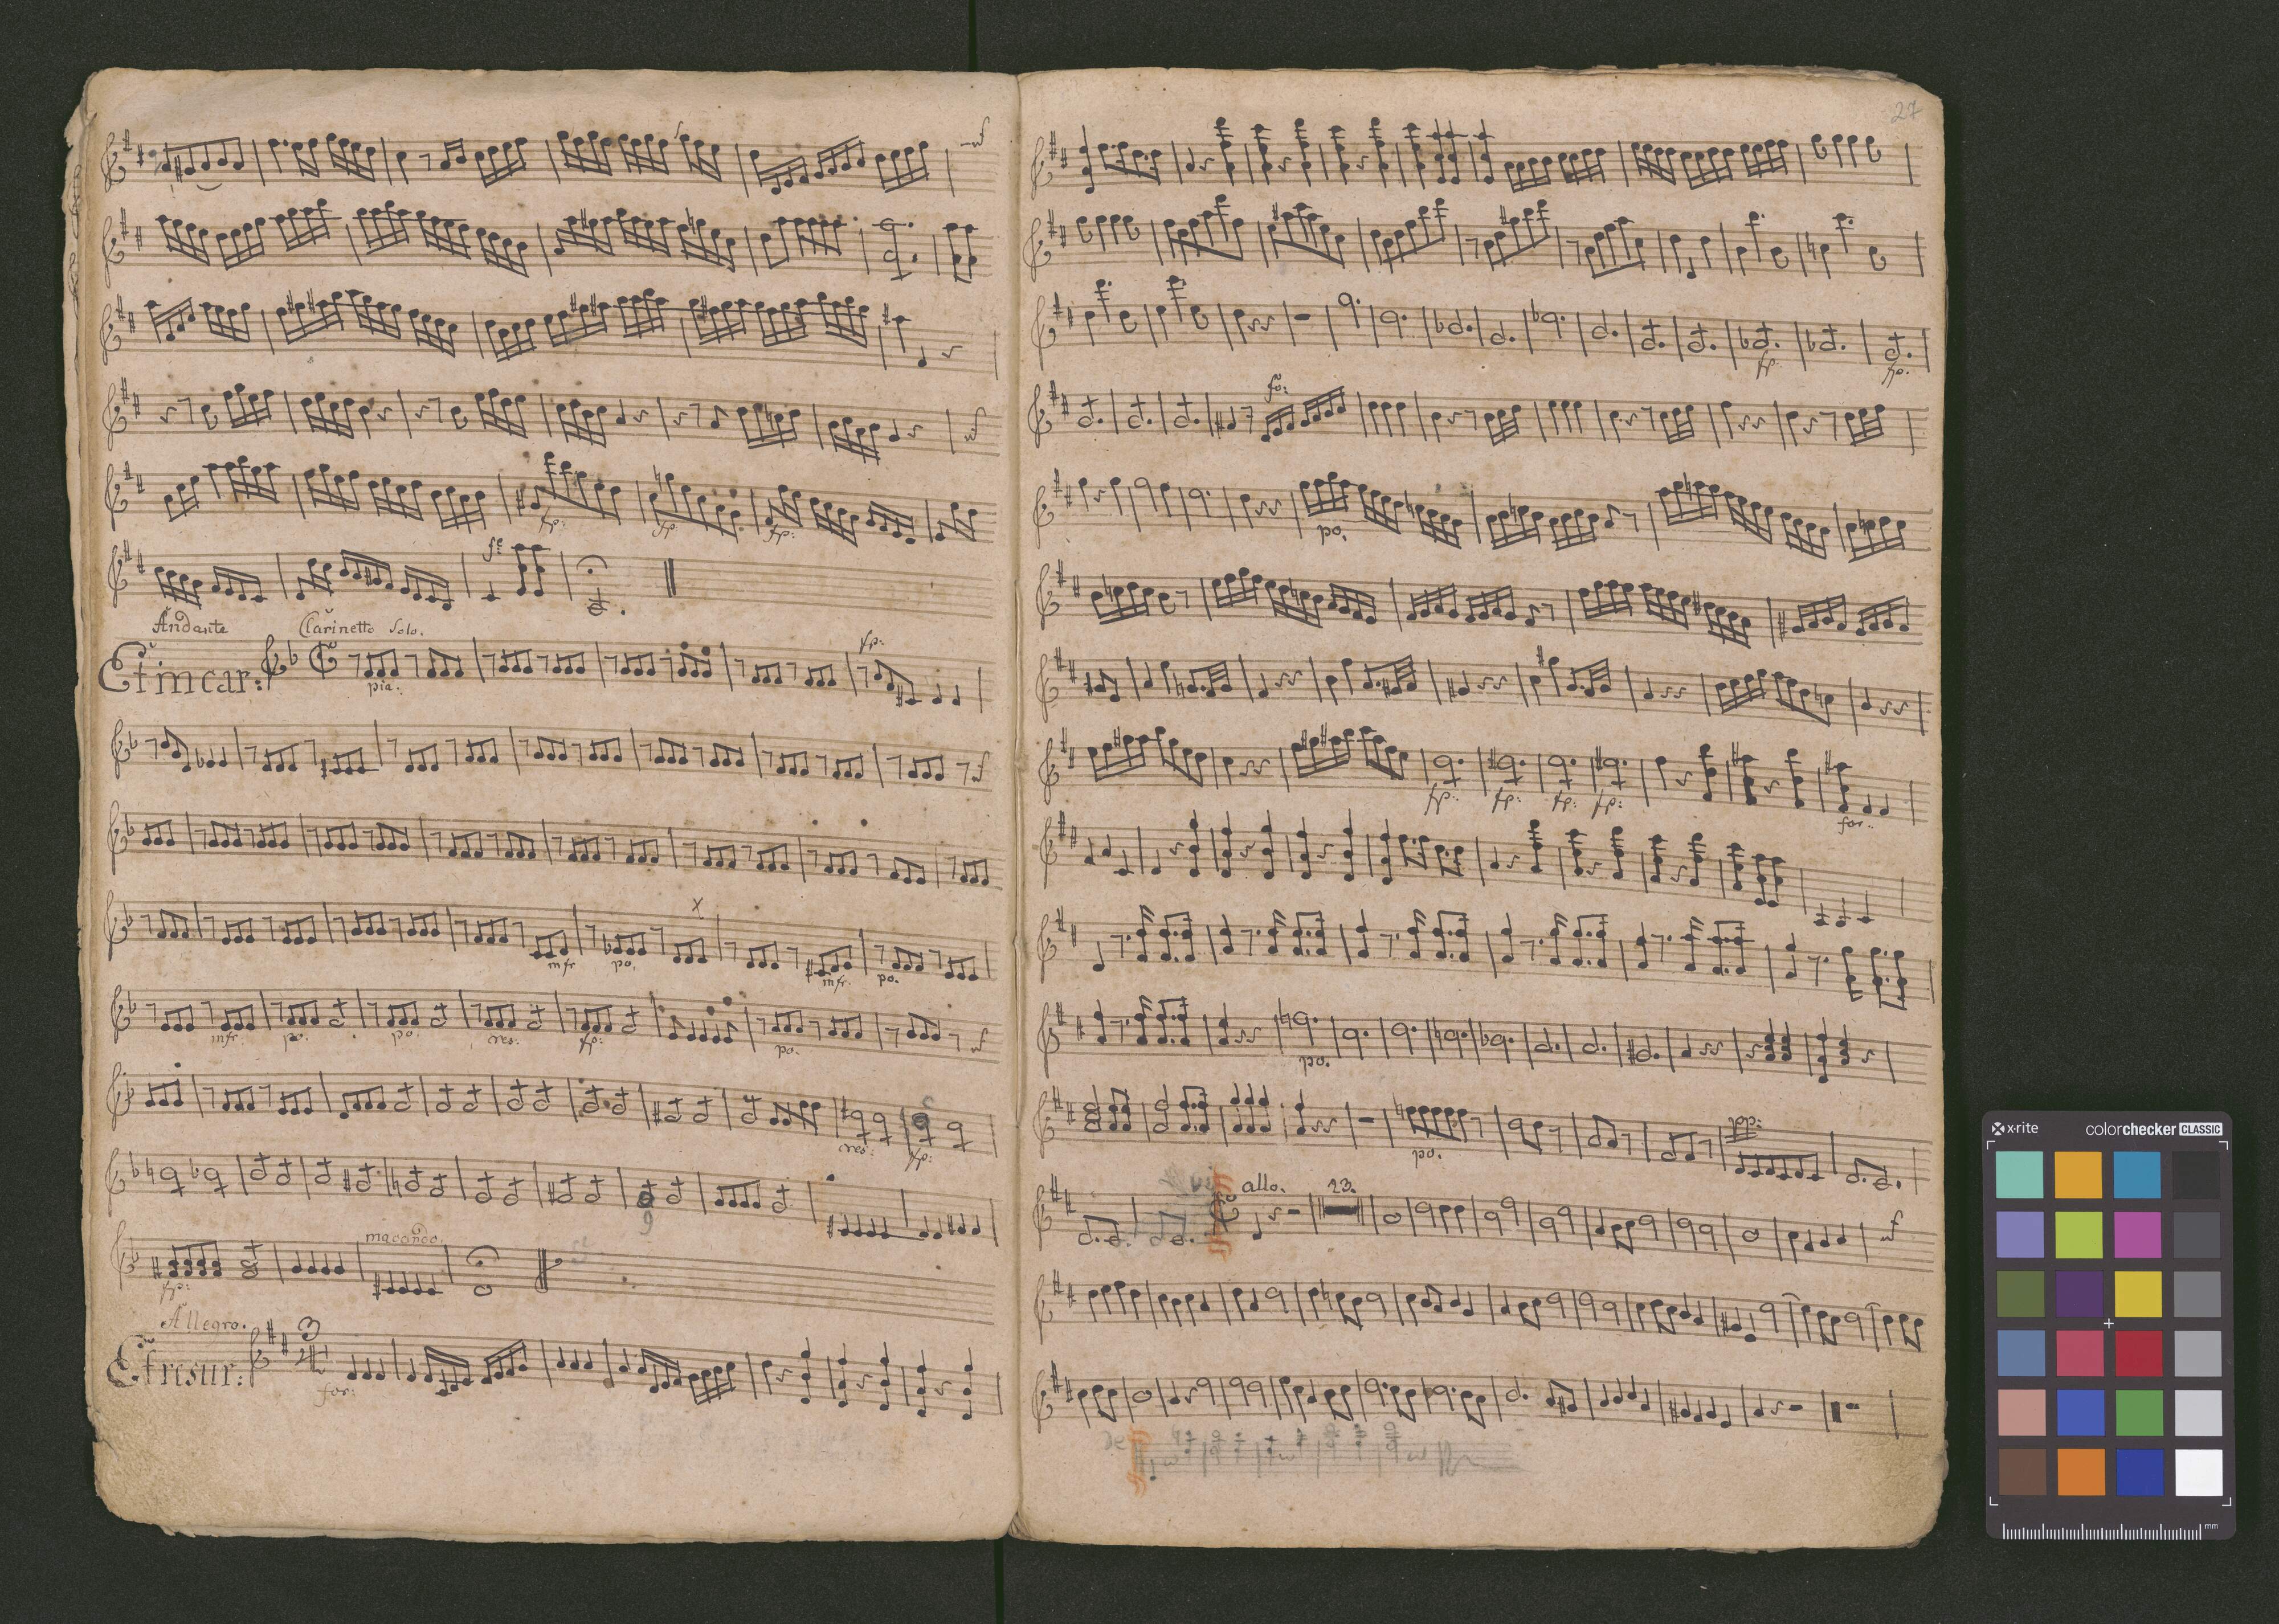 fp: fp fp:
fe
Andante Clarinetto Solo.
Et incar:
pia: fp:
x
mfr po. mfr. po.
mfr. po. po. res. fp: po.
res: fp:
fp: macando.
Allegro.
Et resur:
3
4
for:
27
fp. fp.
fo:
po.
fp: fp: fp: fp: for:
po.
po. pp:
allo. 23.
x·rite colorchecker CLASSIC
mm